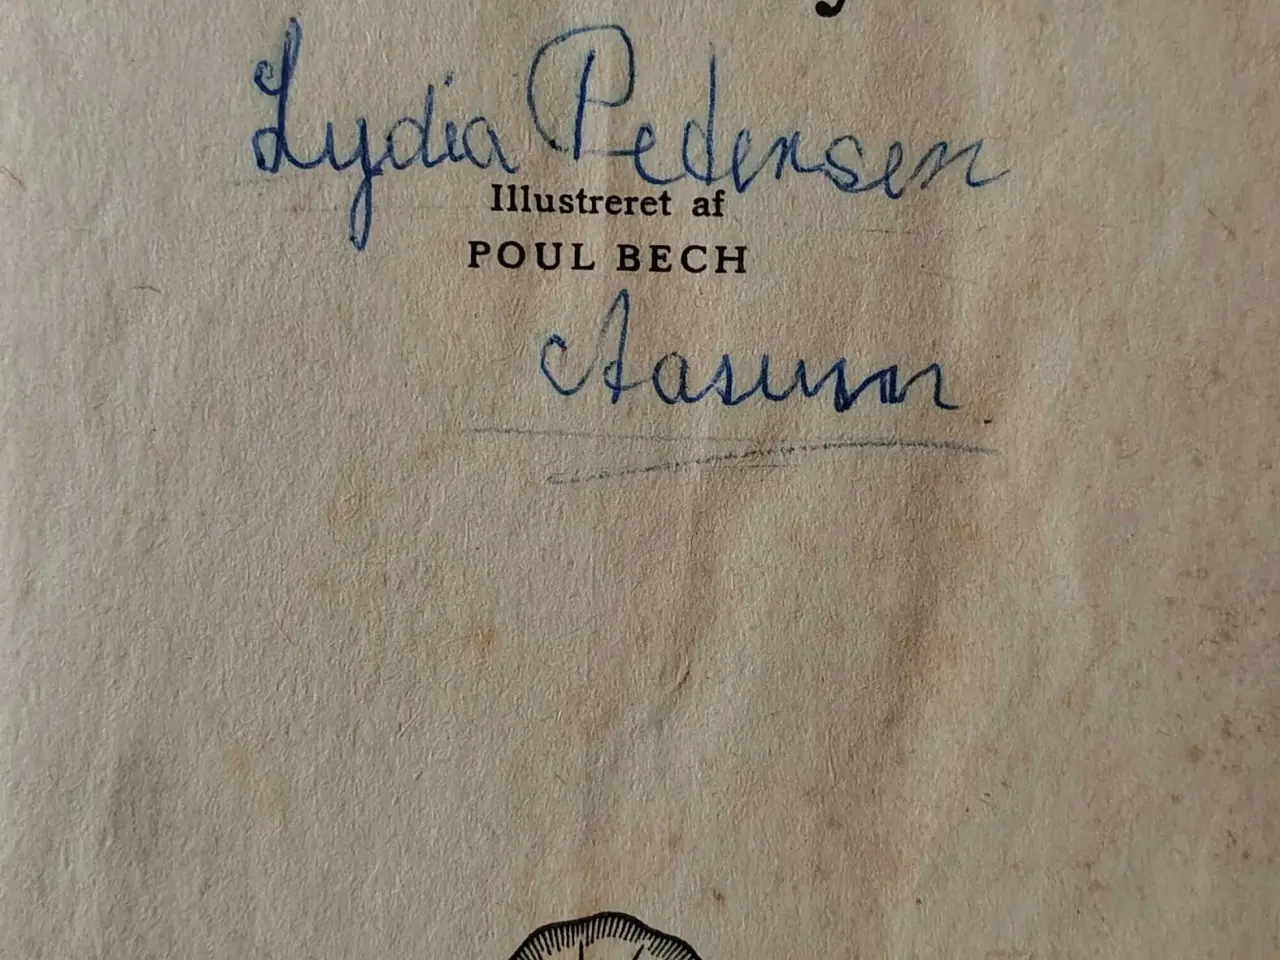 Lydia Pedersen
Illustreret af
POUL BECH
Aasum